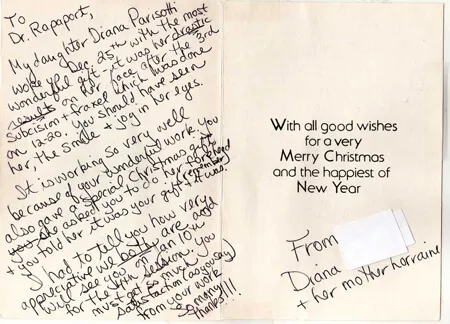 To
Dr. Rapaport,
My daughter Diana Parisotti
woke up Dec. 25th with the most
wonderful gift - it was her drastic
results on her face after the 3rd
subcision + fraxel which was done
on 12-20. You should have seen
her, the smile + joy in her eyes.
It is working so very well
because of your wonderful work. You
also gave a special Christmas gift
you she asked you to do her forehead
+ you told her it was your gift (remember)
+ it was.
I had to tell you how very
appreciative we both are and
will see you on Jan 10th
for the 4th session. You
must get so much
satisfaction (as you say)
from your work
so many
thanks!!!
With all good wishes
for a very
Merry Christmas
and the happiest of
New Year
From
Diana
+ her mother Lorraine